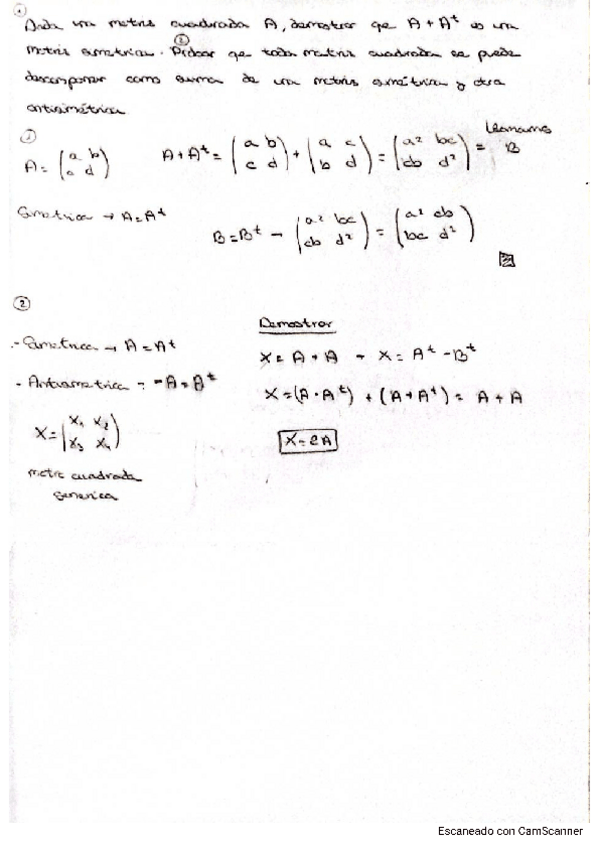 Dada una matriz cuadrada A, demostrar que A + Aᵗ es una
matriz simetrica. ② Probar que toda matriz cuadrada se puede
descomponer como suma de una matriz simétrica y otra
antisimétrica
①
A = (a b / c d) A + Aᵗ = (a b / c d) + (a c / b d) = (a² bc / cb d²) = Llamamos B
Simetrica → A = Aᵗ
B = Bᵗ → (a² bc / cb d²) = (a² cb / bc d²)
②
- Simetrica → A = Aᵗ
- Antisimetrica → -A = Aᵗ
X = (x₁ x₂ / x₃ x₄)
matriz cuadrada
generica
Demostrar
X = A + A → X = Aᵗ - Bᵗ
X = (A · Aᵗ) + (A + Aᵗ) = A + A
X = 2A
Escaneado con CamScanner